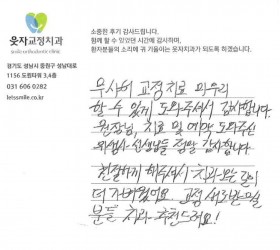 소중한 후기 감사드립니다.
함께 할 수 있었던 시간에 감사하며,
환자분들의 소리에 귀 기울이는 웃자치과가 되도록 하겠습니다.
웃자교정치과
경기도 성남시 중원구 성남대로
1156 도원타워 3,4층
031 606 0282
letssmile.co.kr
무사히 교정 치료 마무리
할 수 있게 도와주셔서 감사합니다.
원장님, 치료 및 예방 도와주신
위생사 선생님들 정말 감사합니다.
친절하게 해주셔서 치과 오는 길이
더 가벼웠어요. 교정
분들 치과 추천드려요!